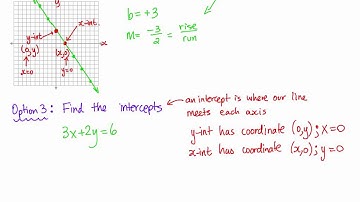 b = +3
m = -3/2 = rise/run
y
x
y-int
(0,y)
x=0
x-int
(x,0)
y=0
Option 3: Find the intercepts
an intercept is where our line
meets each axis
3x+2y=6
y-int has coordinate (0,y); x=0
x-int has coordinate (x,0); y=0